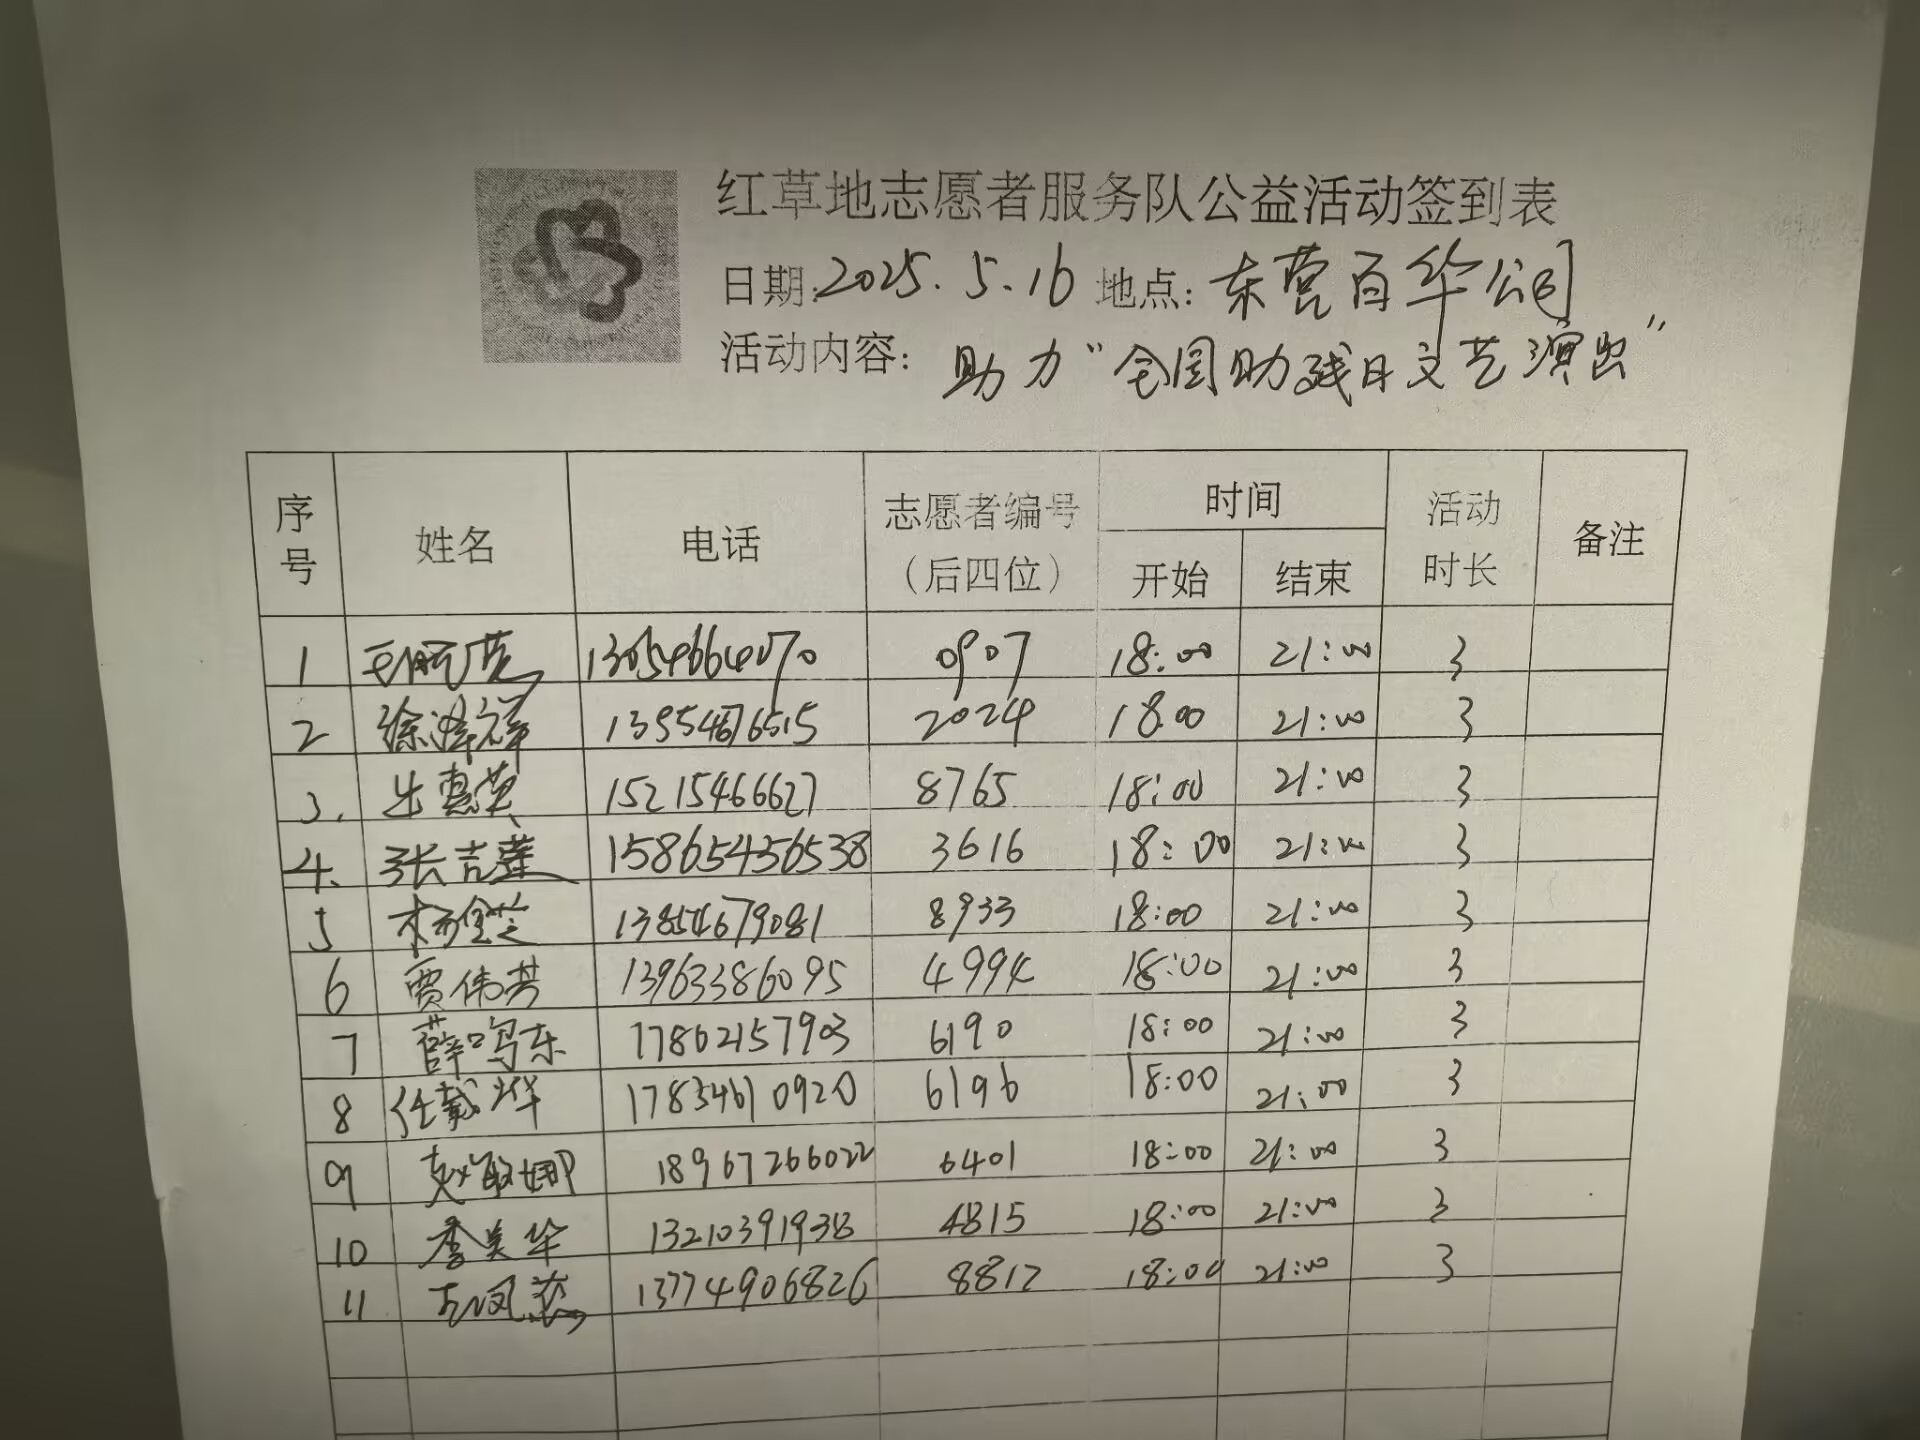 红草地志愿者服务队公益活动签到表
日期:2025.5.16 地点:东营百华公司
活动内容:助力"全国助残日文艺演出"
序号 姓名 电话 志愿者编号（后四位） 时间 开始 结束 活动时长 备注
1 13054664070 0907 18:00 21:00 3
2 徐泽祥 13954676515 2024 18:00 21:00 3
3. 惠英 15215466627 8765 18:00 21:00 3
4. 张吉莲 158654356538 3616 18:00 21:00 3
5 杨金芝 13854679081 8933 18:00 21:00 3
6 贾伟芳 13963386095 4994 18:00 21:00 3
7 薛鸣东 17862157903 6190 18:00 21:00 3
8 任戴烨 17834610920 6196 18:00 21:00 3
9 赵敏娜 18967266022 6401 18:00 21:00 3
10 李美华 13210391938 4815 18:00 21:00 3
11 13774906826 8812 18:00 21:00 3